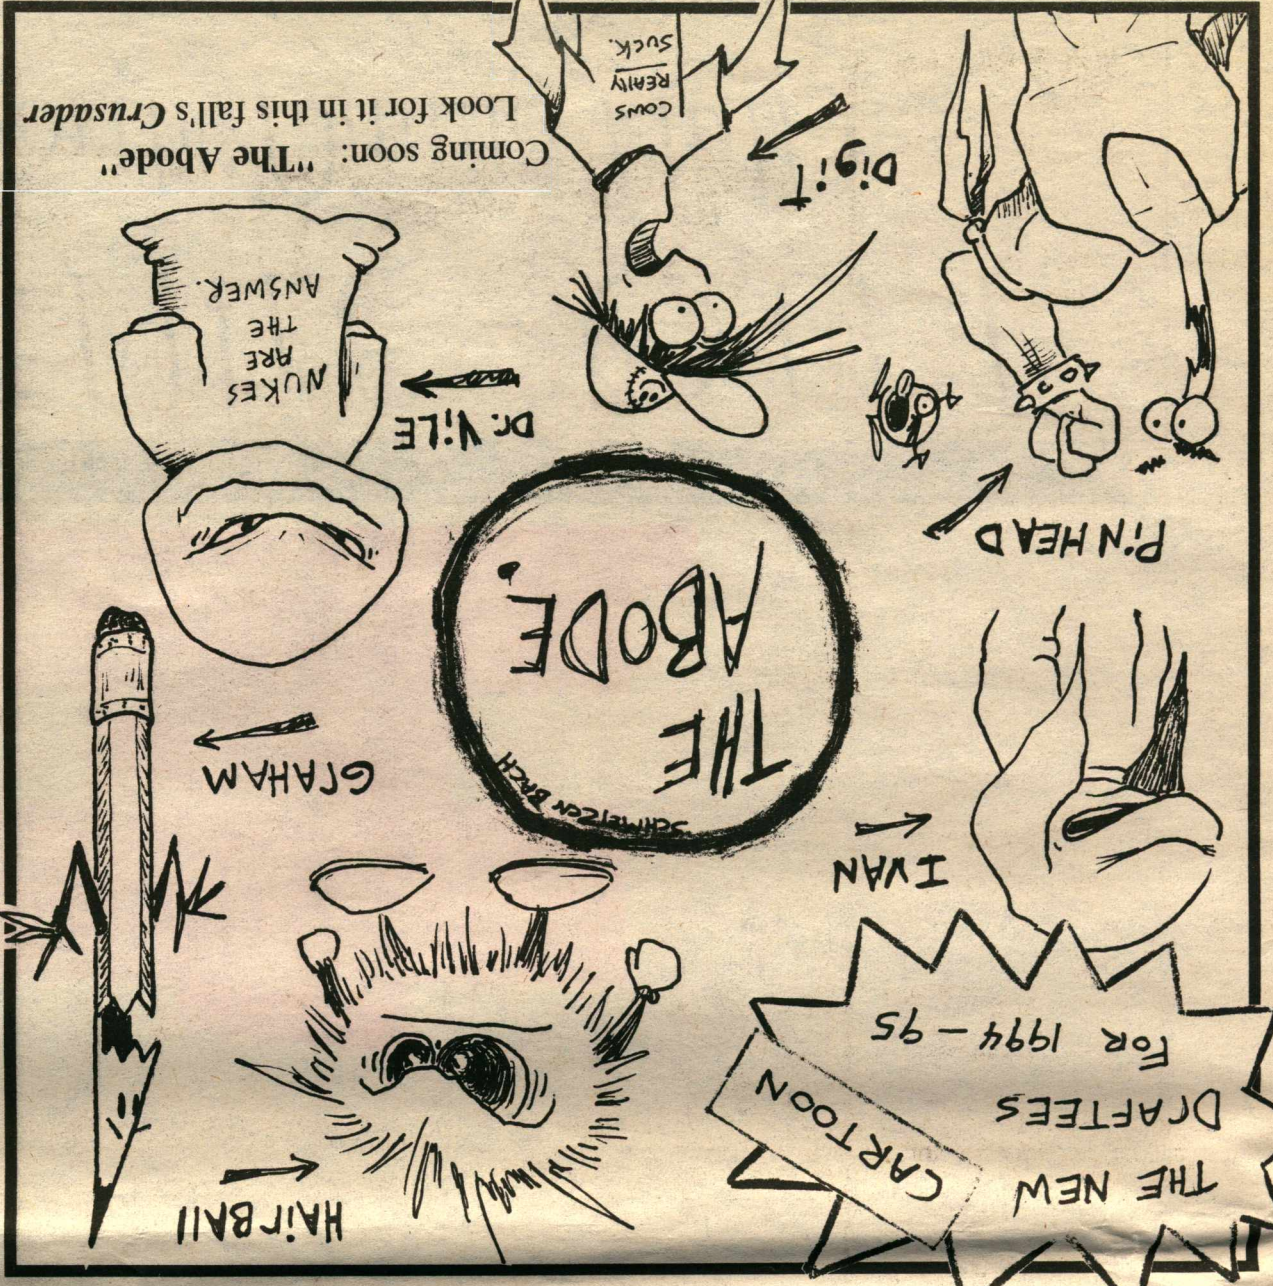 THE NEW
CARTOON
DrAFTEES
FOR 1994-95
HAirBAll
IVAN
GrAHAM
SCHMELZEN BACH
THE
ABODE.
PiNHEAD
Dr. ViLE
NUKES
ARE
THE
ANSWER.
Digit
COWS
REAllY
SUCK.
Coming soon: "The Abode"
Look for it in this fall's Crusader